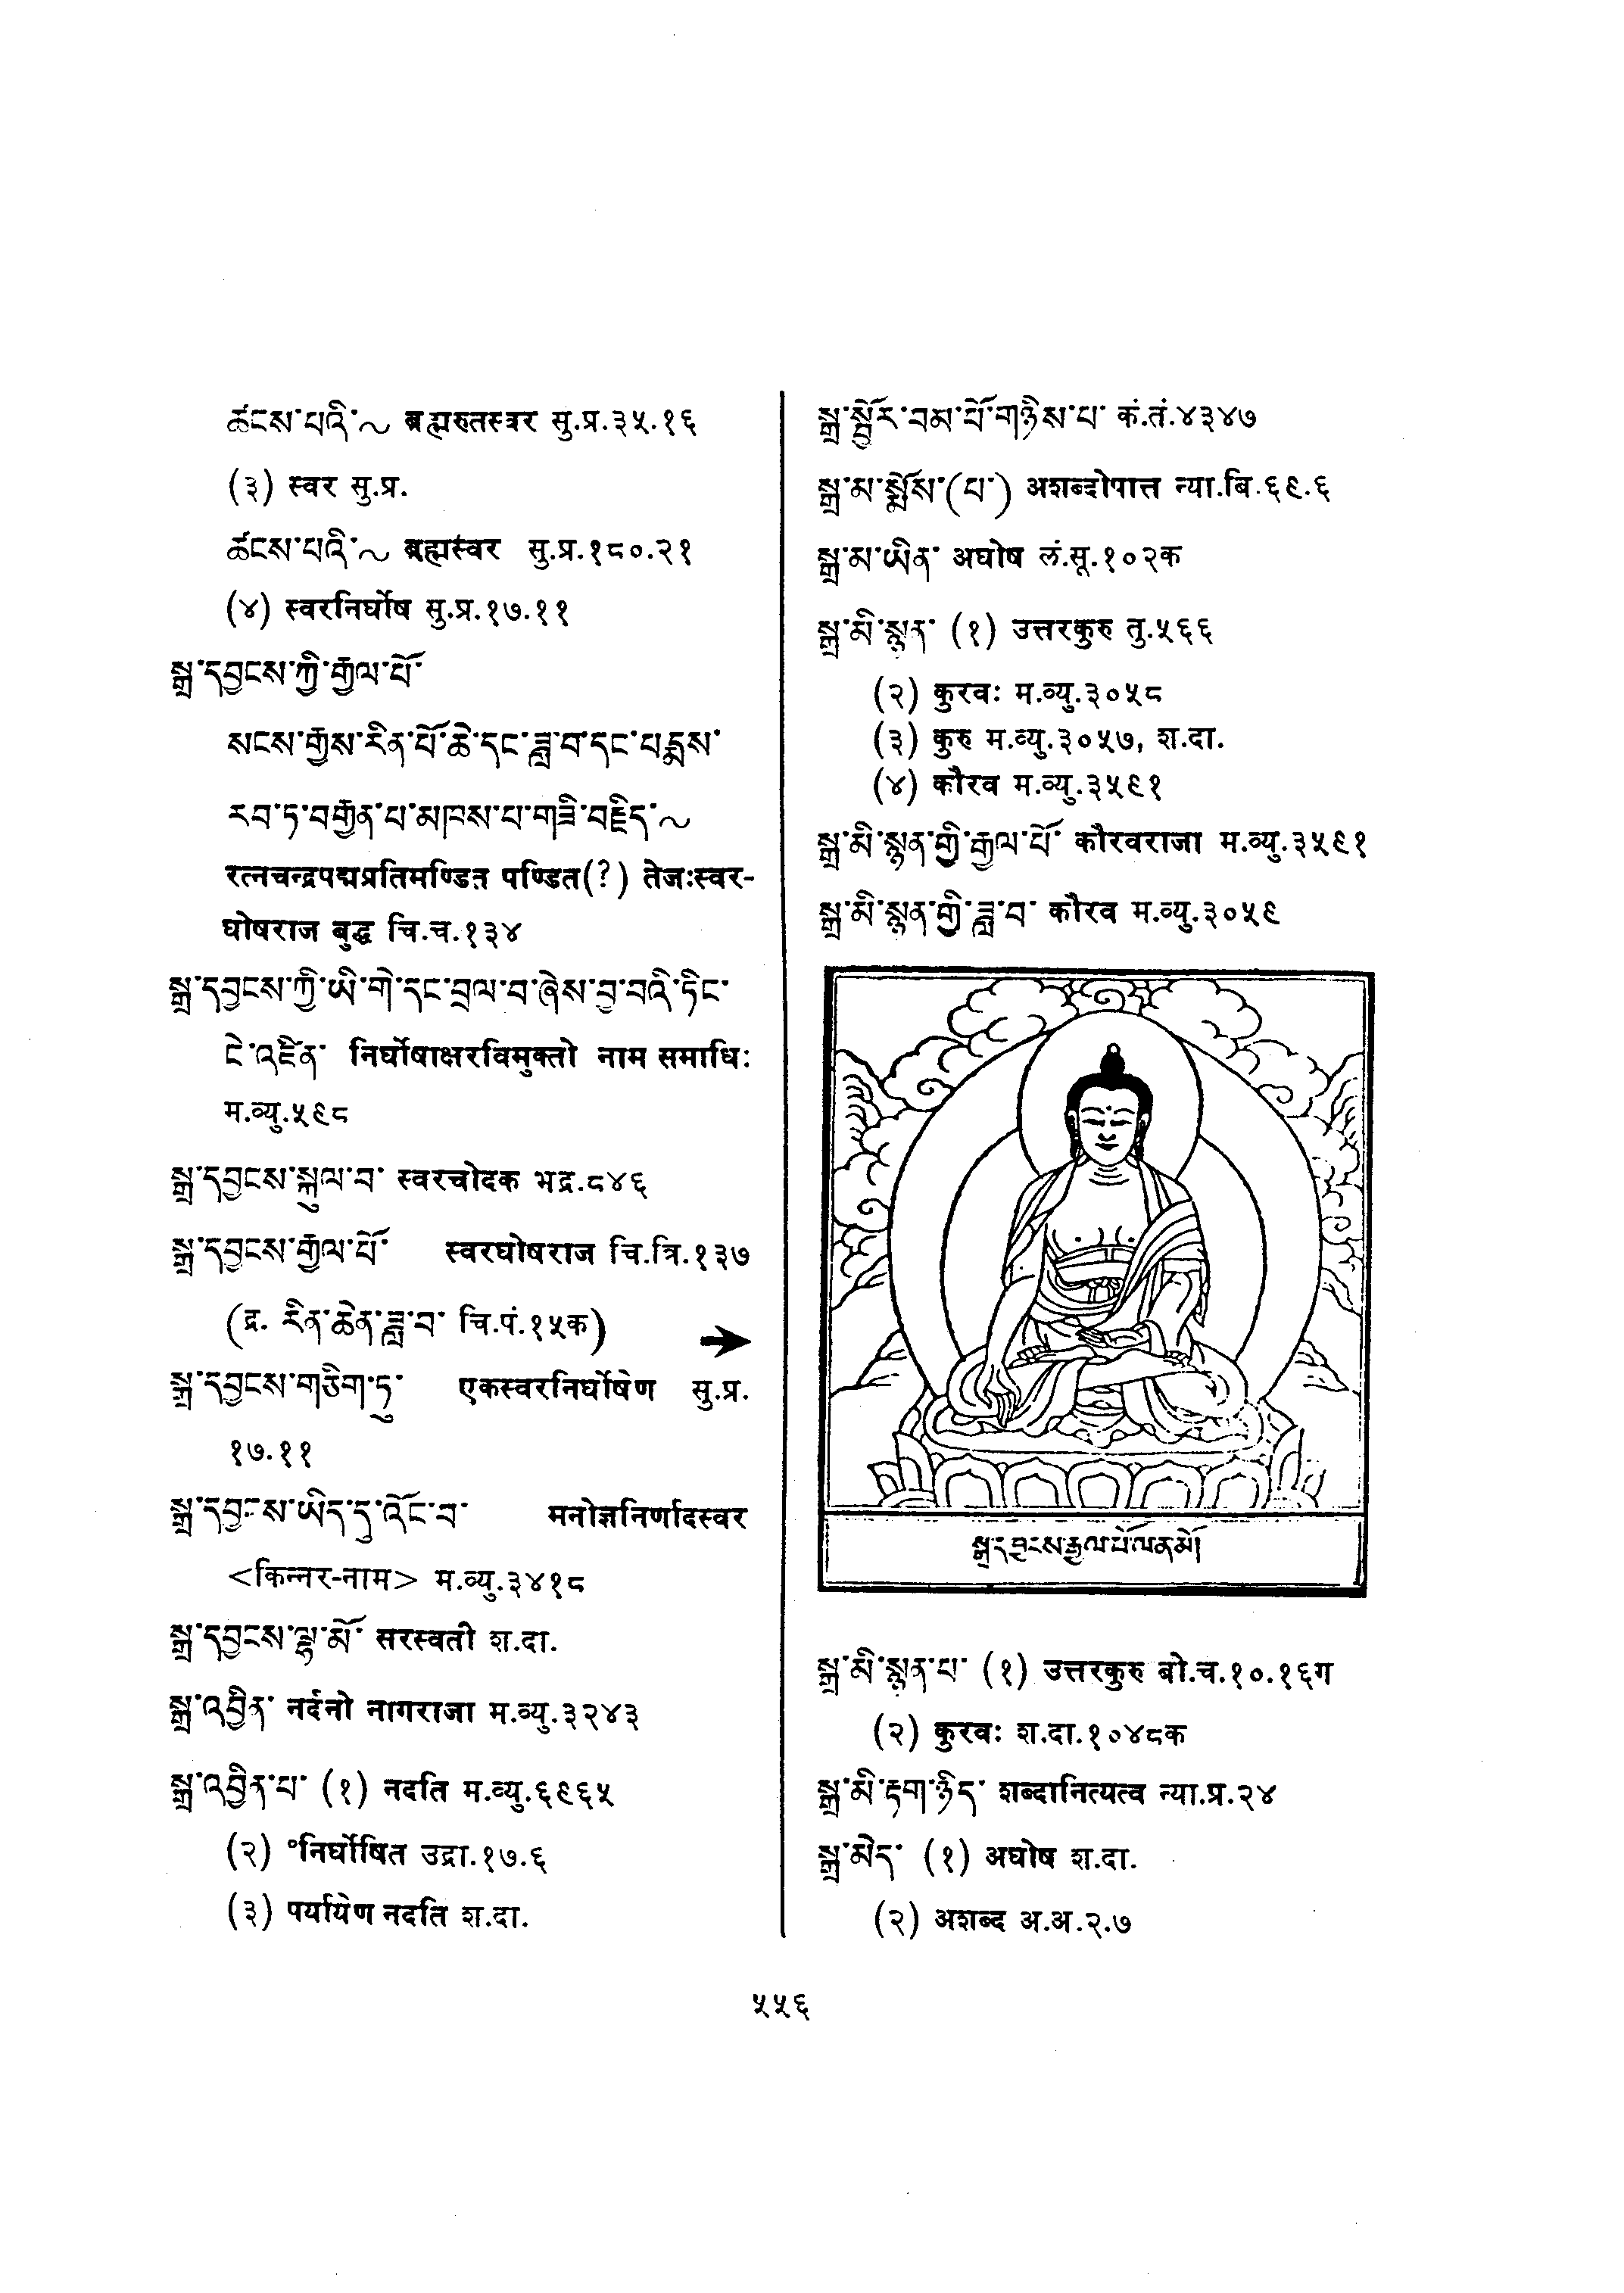 ཚངས་པའི་～ ब्रह्मरुतस्वर सु.प्र.३५.१६
(३) स्वर सु.प्र.
ཚངས་པའི་～ ब्रह्मस्वर सु.प्र.१८०.२१
(४) स्वरनिर्घोष सु.प्र.१७.११
སྒྲ་དབྱངས་ཀྱི་རྒྱལ་པོ་
སངས་རྒྱས་རིན་པོ་ཆེ་དང་ཟླ་བ་དང་པདྨས་
རབ་ཏ་བརྒྱན་པ་མཁས་པ་གཟི་བརྗིད་～
रत्नचन्द्रपद्मप्रतिमण्डित पण्डित(?) तेजःस्वर-
घोषराज बुद्ध चि.च.१३४
སྒྲ་དབྱངས་ཀྱི་ཡི་གེ་དང་བྲལ་བ་ཞེས་བྱ་བའི་ཏིང་
ངེ་འཛིན་ निर्घोषाक्षरविमुक्तो नाम समाधिः
म.व्यु.५९८
སྒྲ་དབྱངས་སྐུལ་བ་ स्वरचोदक भद्र.८४६
སྒྲ་དབྱངས་རྒྱལ་པོ་ स्वरघोषराज चि.त्रि.१३७
(द्र. རིན་ཆེན་ཟླ་བ་ चि.पं.१५क)
སྒྲ་དབྱངས་གཅིག་ཏུ་ एकस्वरनिर्घोषेण सु.प्र.
१७.११
སྒྲ་དབྱངས་ཡིད་དུ་འོང་བ་ मनोज्ञनिर्णादस्वर
<किन्नर-नाम> म.व्यु.३४१८
སྒྲ་དབྱངས་ལྷ་མོ་ सरस्वती श.दा.
སྒྲ་འབྱིན་ नर्दनो नागराजा म.व्यु.३२४३
སྒྲ་འབྱིན་པ་ (१) नदति म.व्यु.६९६५
(२) °निर्घोषित उद्रा.१७.६
(३) पर्यायेण नदति श.दा.
སྒྲ་སྦྱོར་བམ་པོ་གཉིས་པ་ कं.तं.४३४७
སྒྲ་མ་སྨོས་(པ་) अशब्दोपात्त न्या.बि.६९.६
སྒྲ་མ་ཡིན་ अघोष लं.सू.१०२क
སྒྲ་མི་སྙན་ (१) उत्तरकुरु तु.५६६
(२) कुरवः म.व्यु.३०५८
(३) कुरु म.व्यु.३०५७, श.दा.
(४) कौरव म.व्यु.३५९१
སྒྲ་མི་སྙན་གྱི་རྒྱལ་པོ་ कौरवराजा म.व्यु.३५९१
སྒྲ་མི་སྙན་གྱི་ཟླ་བ་ कौरव म.व्यु.३०५९
སྒྲ་དབྱངས་རྒྱལ་པོ་ལ་ན་མོ།
སྒྲ་མི་སྙན་པ་ (१) उत्तरकुरु बो.च.१०.१६ग
(२) कुरवः श.दा.१०४८क
སྒྲ་མི་རྟག་ཉིད་ शब्दानित्यत्व न्या.प्र.२४
སྒྲ་མེད་ (१) अघोष श.दा.
(२) अशब्द अ.अ.२.७
५५६